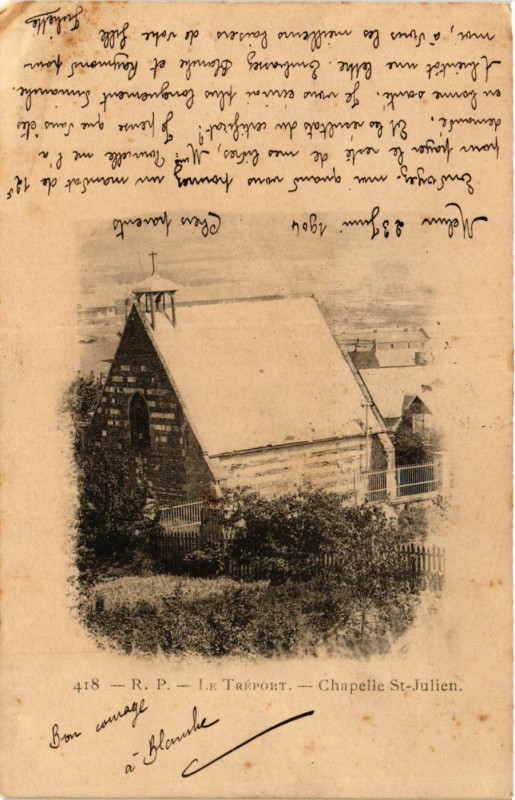 Melun 23 Juin 1904 Chers parents
Envoyez-moi quand vous pourrez un mandat de 12f
pour payer le reste de mes livres, Mme Tourelle me l'a
demandé. Et les résultats du certificat? Je pense que vous êtes
en bonne santé. Je vous écrirai plus longuement Dimanche.
A bientôt une lettre. Embrassez Blanche et Raymond pour
moi, à vous les meilleurs baisers de votre fille
Juliette
418 — R. P. — LE TRÉPORT. — Chapelle St-Julien.
Bon courage
à Blanche